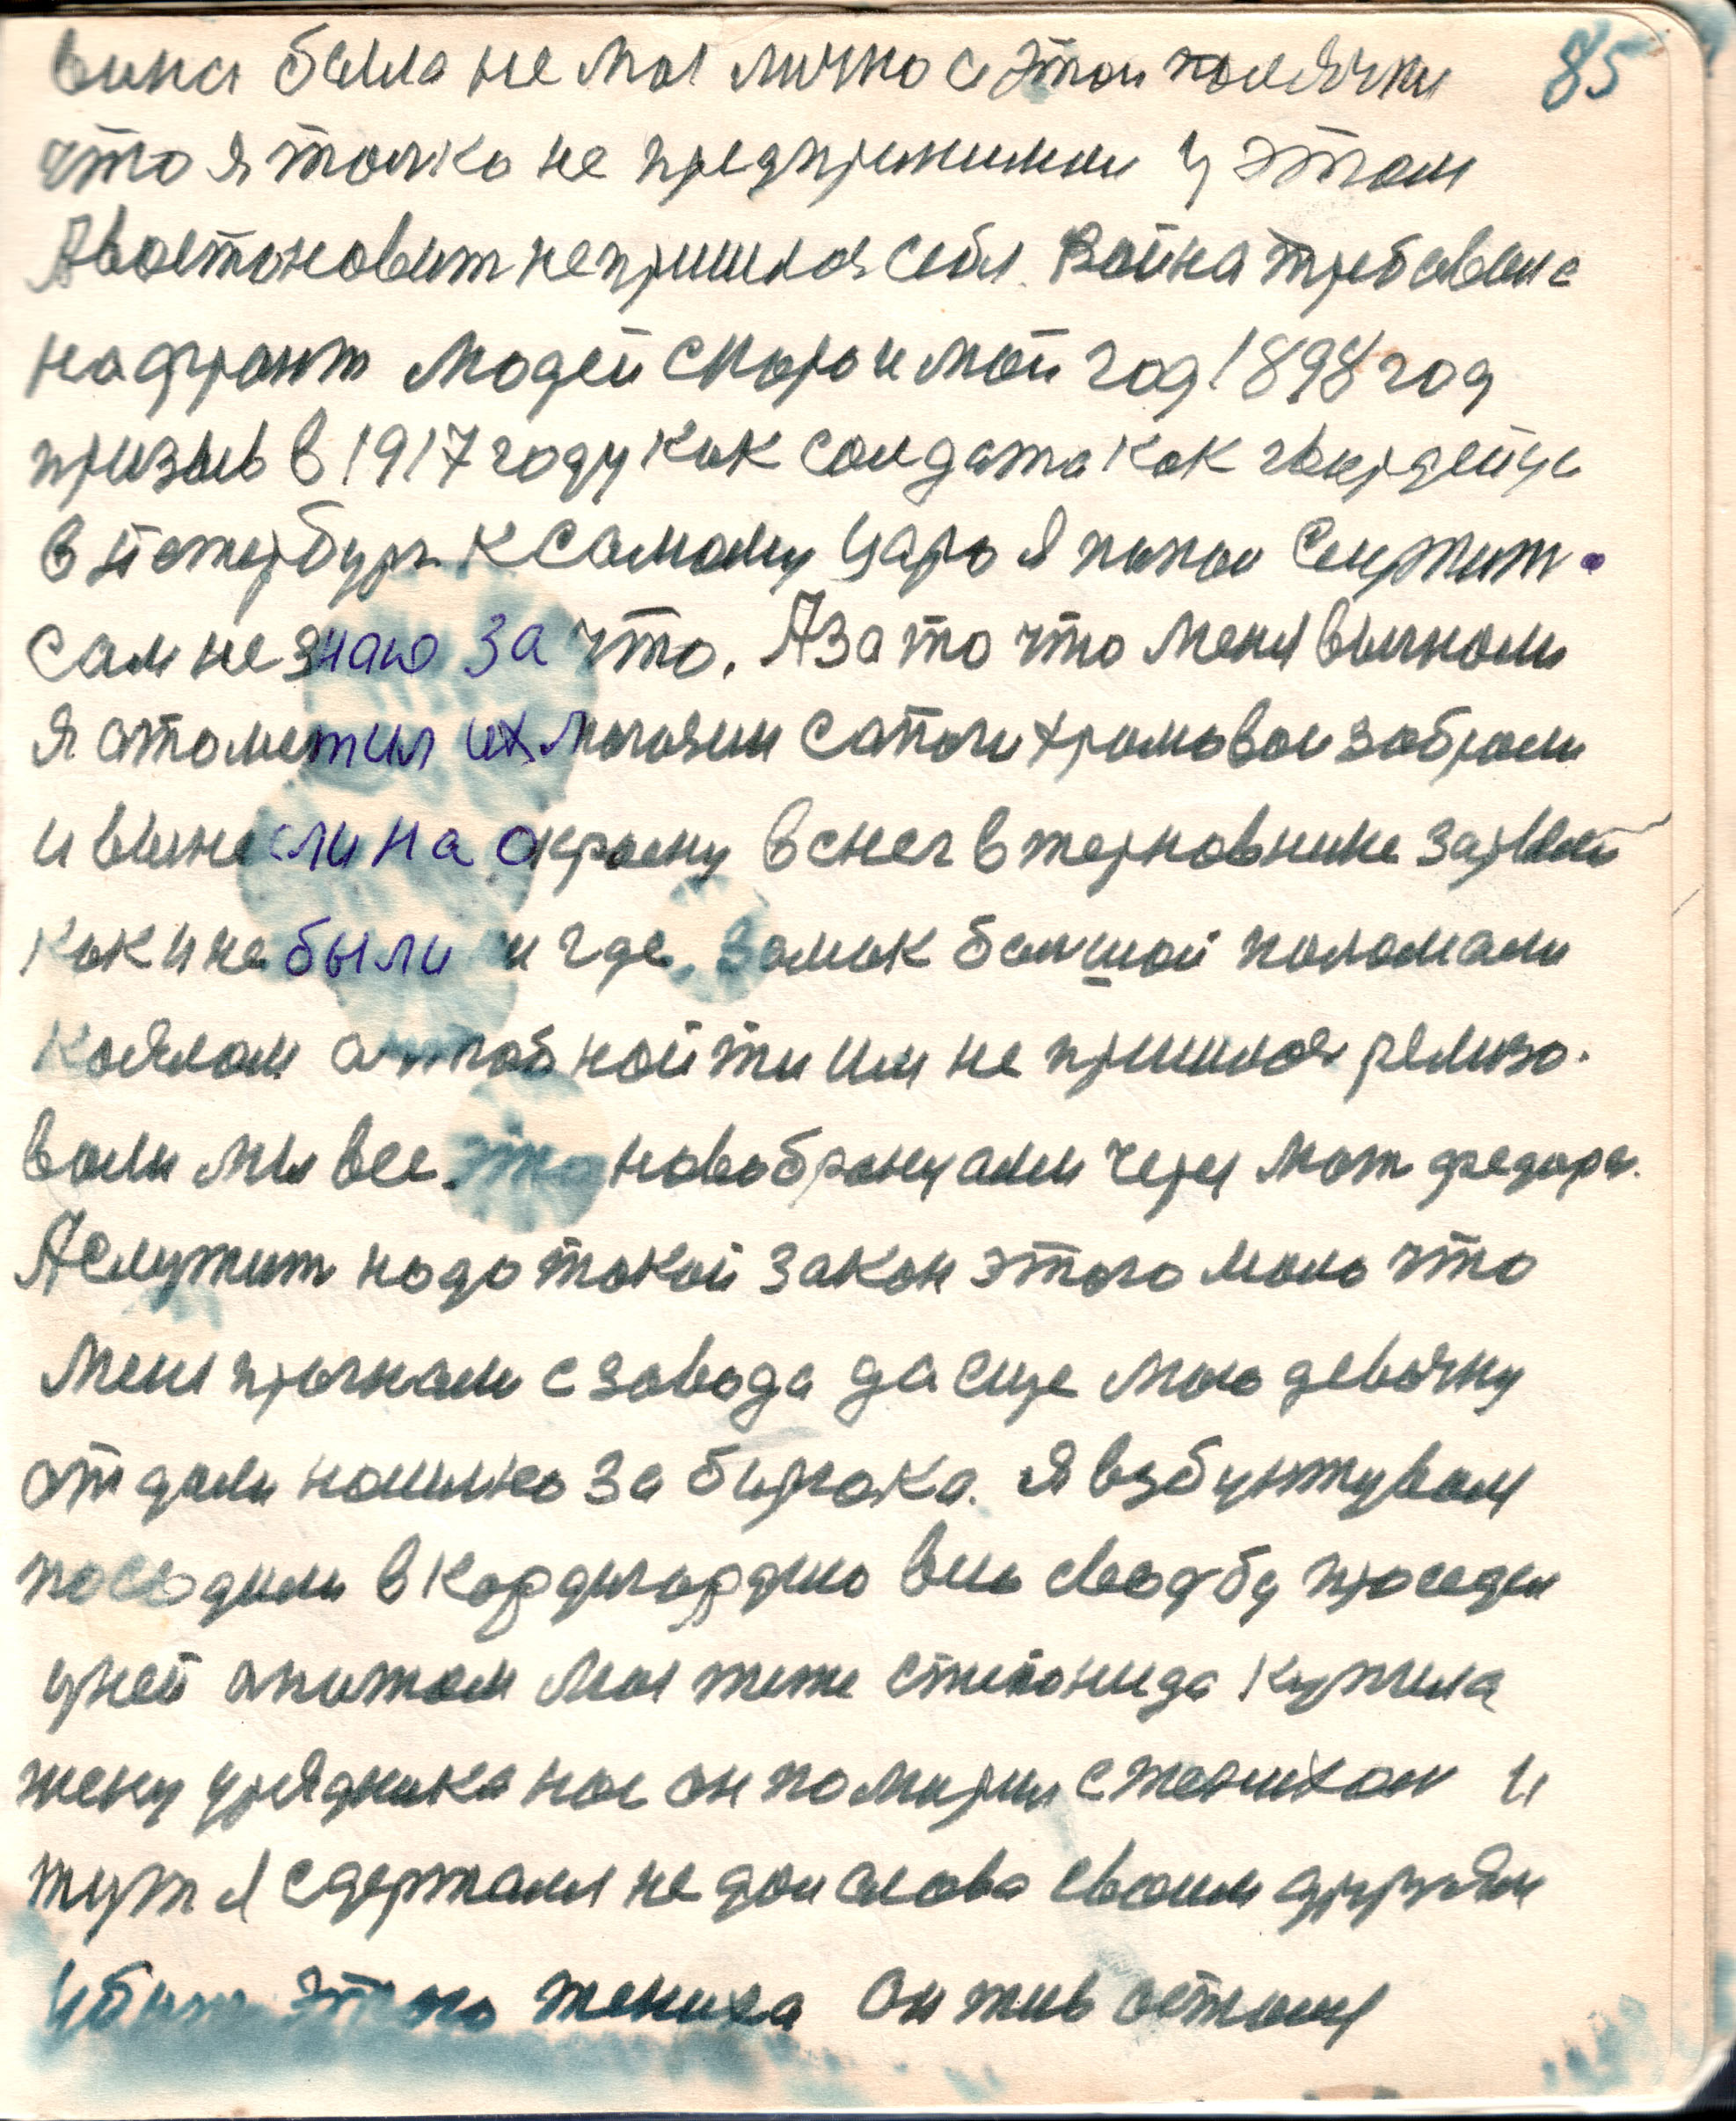 85
вина была не моя лично а этой полячки
что я толко не предпринимал у этом
А востоновит не пришлося себя. Война требовала
на фронт людей скоро и мой год 1898 год
призыв в 1917 году как солдата как гвардейца
в Петербург к самому Царю я попал Служит.
сам не знаю за что. А за то что меня выгнали
я отометил их могазин сапоги хромовои забрали
и вынесли на окраину в снег в терновнике зарыли
как и не были и где. Замок болшой поломали
колялом а чтоб найти им не пришлося реализо.
вали мы все это новобранцами через мат федора.
А служит надо такой закон этого мало что
меня прогнали с завода да еще мою девочку
отдали насилно за бирюка. Я взбунтувал
посадили в кордигардию всю свадбу просидел
у ней а потом моя тетя степонида купила
жену урядника нас он помирил с женихом и
тут я сдержался не дал слова своим друзям
Убит этого жениха Он жив остался